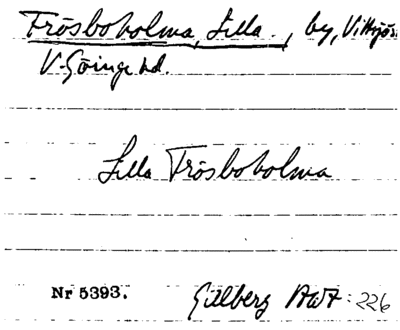 Frösboholma, Lilla., by, Vittsjös.
V. Göinge hd.
Lilla Frösboholma
Nr 5393. Gillberg 226